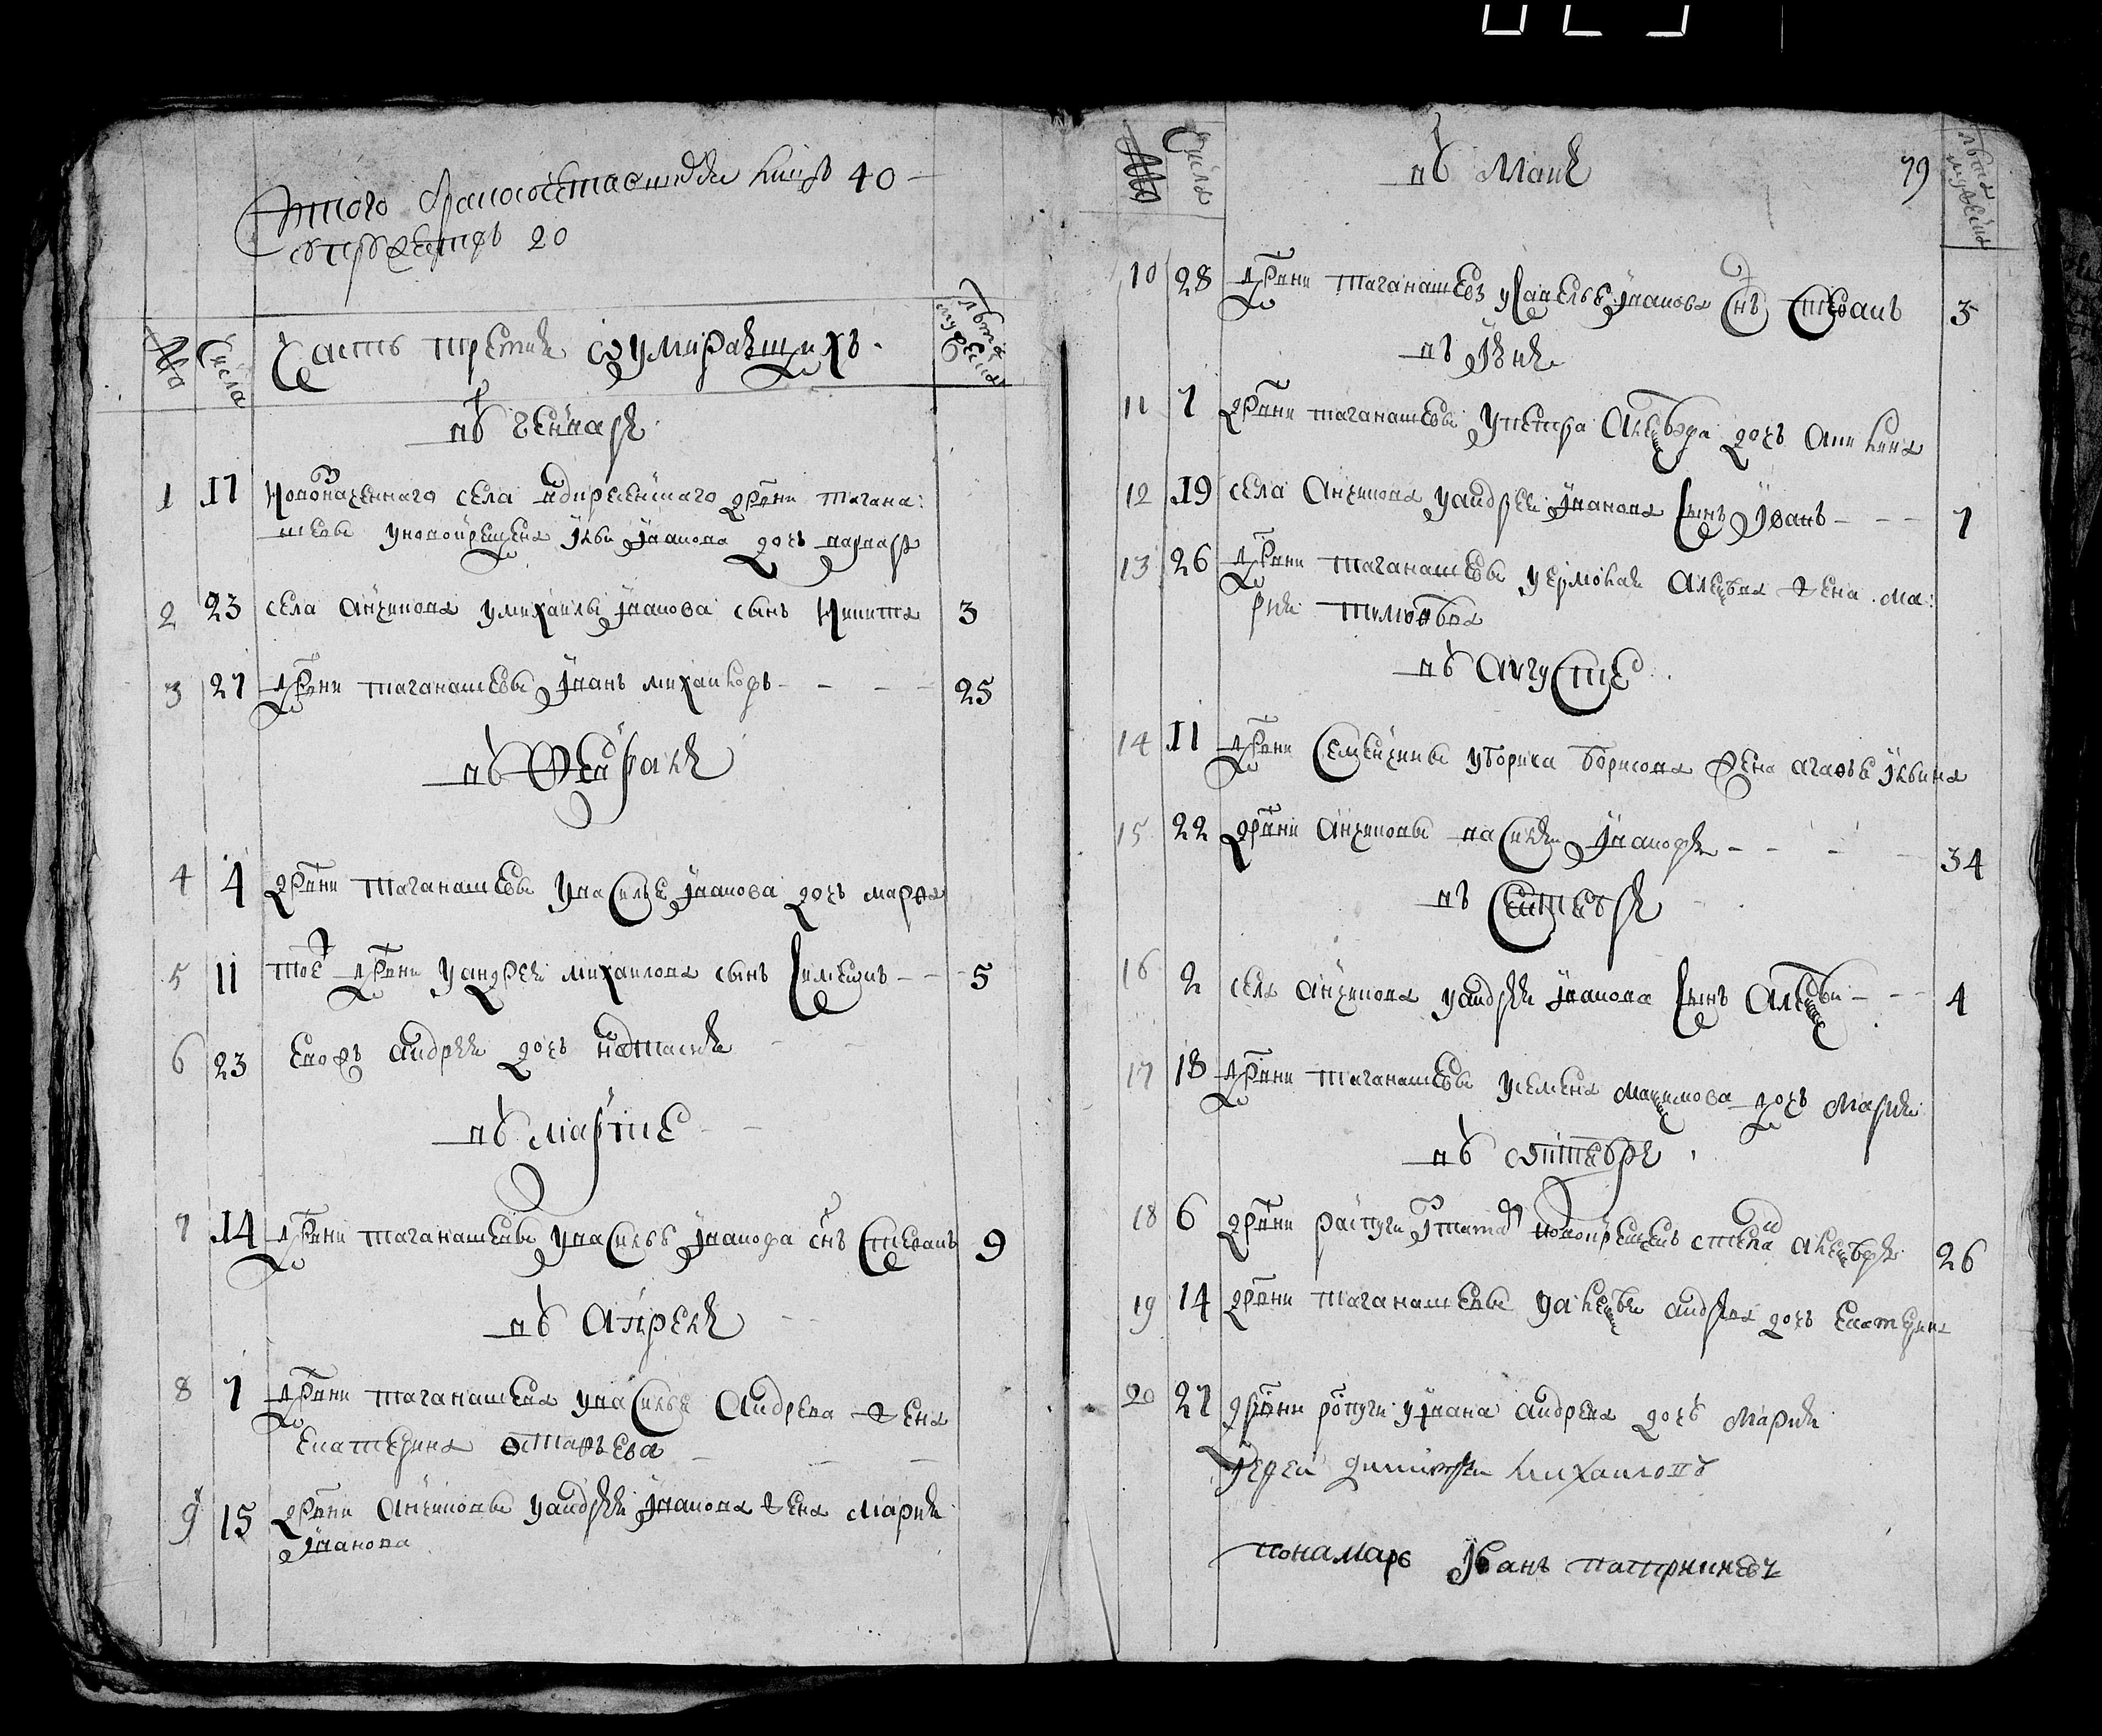 Итого бракосочетавшихся лицъ 40
супружествъ 20
№ Числа Часть третия о умирающихъ. Лета мужеска женска
въ генваре
1 17 Новокрещенного села воскресенскаго дрвни тагана:
шевы у новокрещена Ивана Иванова дочь варвара
2 23 села Анчикова у михаилы иванова сынъ Никита 3
3 27 дрвни таганашевы Иванъ михаиловъ 25
въ Феврале
4 4 дрвни таганашевы у василья иванова дочь марфа
5 11 тое дрвни у андрея михаилова сынъ семенъ 5
6 23 андрея дочь наталия
въ марте
7 14 дрвни таганашевы у василья иванова снъ Стефанъ 9
въ Апреле
8 7 дрвни таганашева у василья Андреева жена
екатерина
9 15 дрвни Анчиковы у андрея иванова жена Мария
Иванова
№ Числа въ Маие 79 лета
10 28 дрвни таганашевы у савелья иванова снъ Стефанъ 3
въ Июне
11 7 дрвни таганашевы у петра Алексеева дочь
12 19 села Анчикова у андрея иванова сынъ Иванъ 7
13 26 дрвни таганашевы у ермолая Алексеева жена Ма:
рия тимофеева
въ Августе
14 11 дрвни Семенчины у бориса борисова жена агафья
15 22 дрвни Анчиковы василей Ивановъ 34
въ Сентебре
16 2 села Анчикова у андрея иванова сынъ Алексей 4
17 18 дрвни таганашевы у семена Максимова дочь Мария
въ октебре
18 6 дрвни новокрещенъ степанъ алексеевъ 26
19 14 дрвни таганашевы у алексея андреева дочь екатерина
20 27 дрвни у ивана андреева дочь Мария
Иерей димитрей михаиловъ
пономарь Иванъ